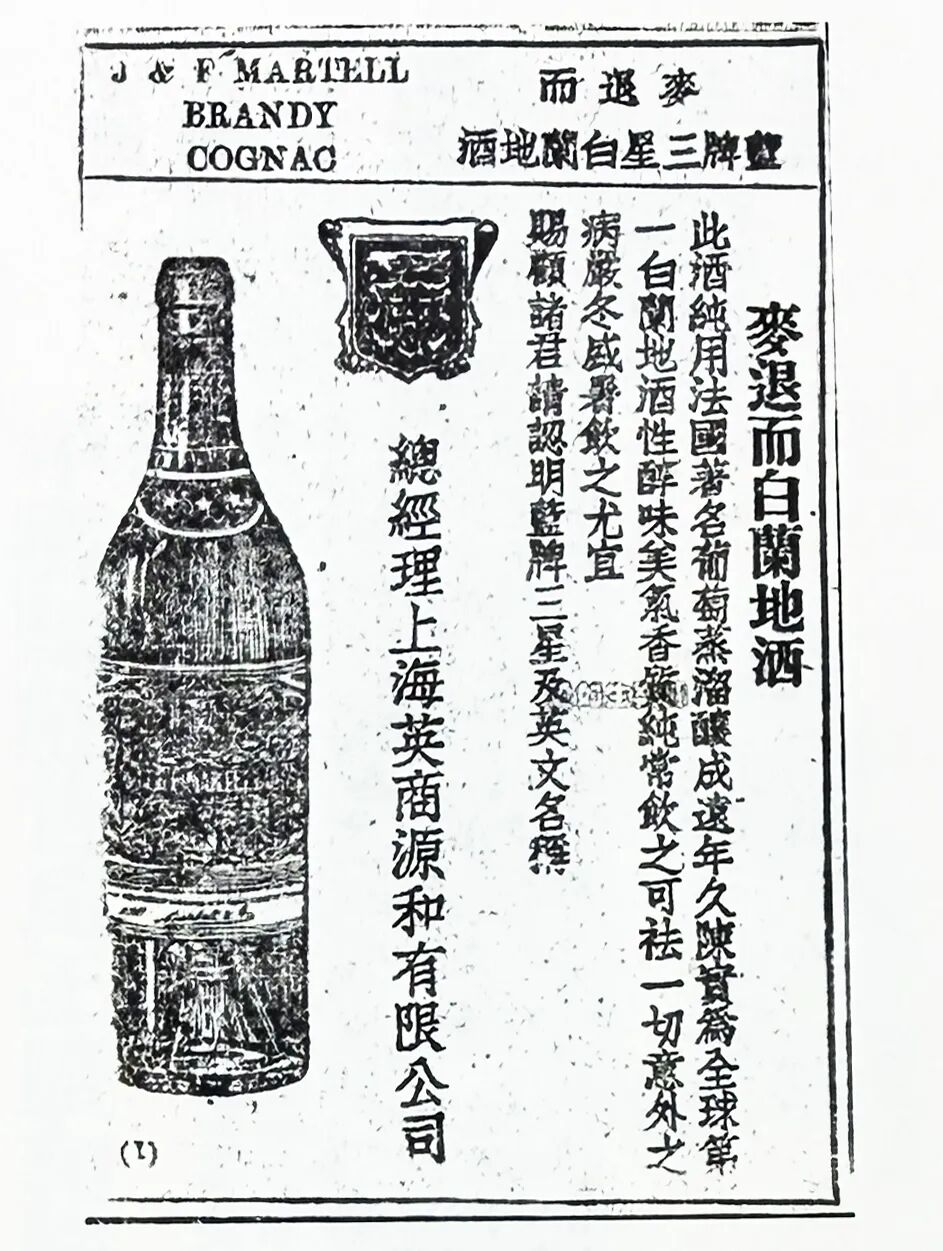 J & F MARTELL
BRANDY
COGNAC
麥退而
藍牌三星白蘭地酒
麥退而白蘭地酒
此酒純用法國著名葡萄蒸溜釀成遠年久陳實爲全球第
一白蘭地酒性醇味美氣香質純常飲之可祛一切意外之
病嚴冬盛暑飲之尤宜
賜顧諸君請認明藍牌三星及英文名稱
總經理上海英商源和有限公司
(I)